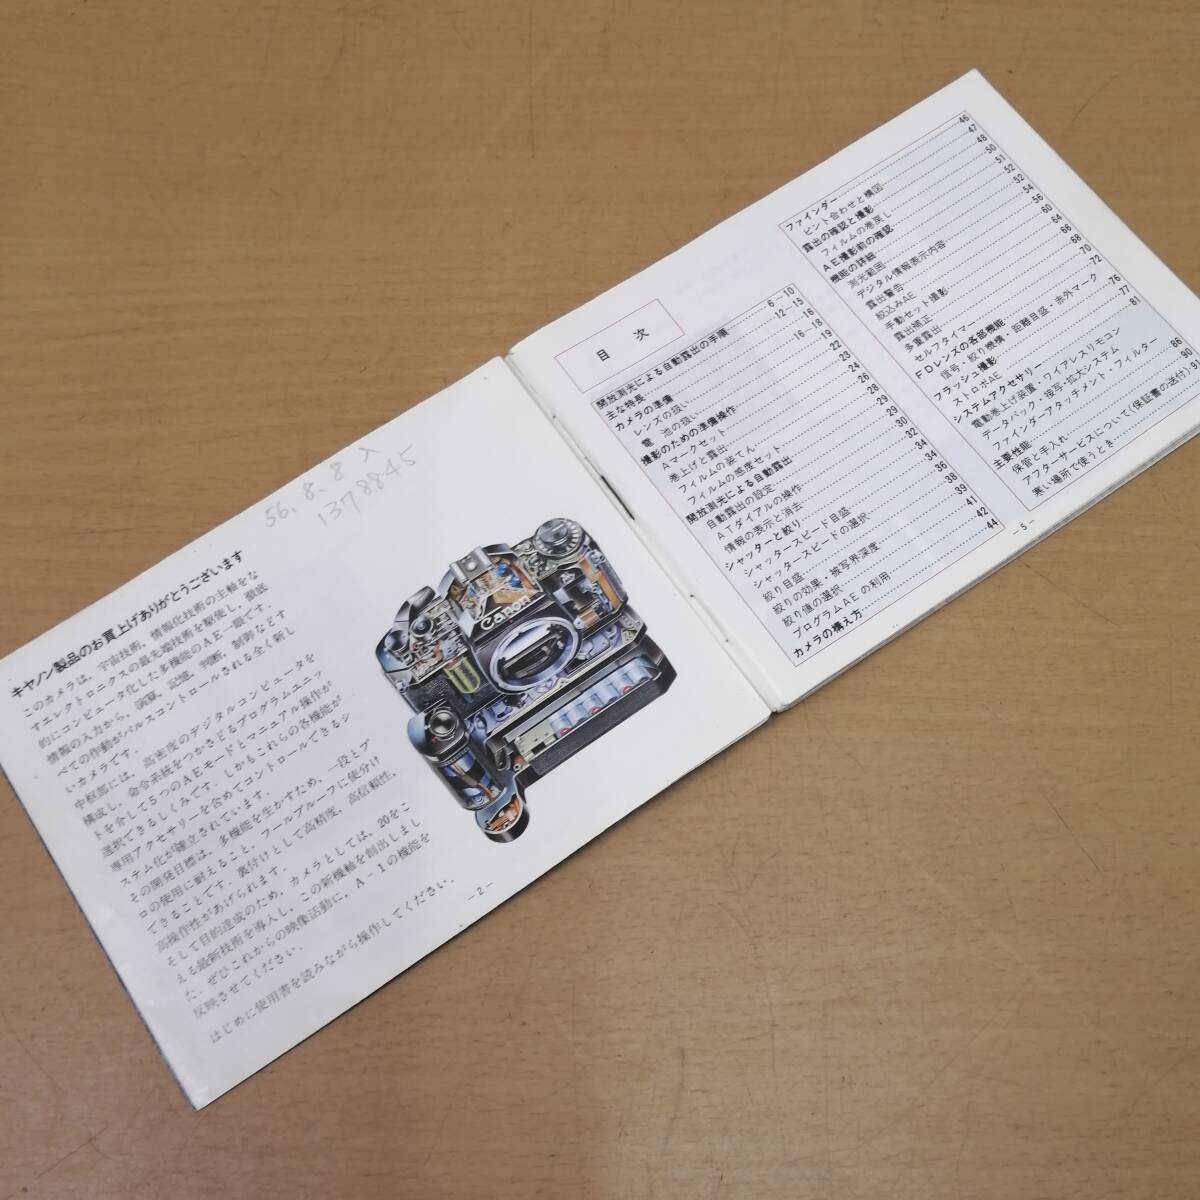 56. 8. 8 入
1378845
キヤノン製品のお買上げありがとうございます
このカメラは、宇宙技術、情報化技術の主軸をな
すエレクトロニクスの最先端技術を駆使し、徹底
的にコンピュータ化した多機能のAE一眼です。
情報の入力から、演算、記憶、判断、制御などす
べての作動がパルスコントロールされる全く新し
いカメラです。
中枢部には、高密度のデジタルコンピュータを
構成し、命令系統をつかさどるプログラムユニッ
トを介して5つのAEモードとマニュアル操作が
選択できるしくみです。しかもこれらの各機能が
専用アクセサリーを含めてコントロールできるシ
ステム化が確立されています。
その開発目標は、多機能を生かすため、一段とプ
ロの使用に耐えること、フールプルーフに使分け
できることです。裏付けとして高精度、高信頼性、
高操作性があげられます。
そして目的達成のため、カメラとしては、20をこ
える最新技術を導入し、この新機軸を創出しまし
た。ぜひこれからの映像活動に、A-1の機能を
反映させてください。
はじめに使用書を読みながら操作してください。
Canon
－2－
目 次
開放測光による自動露出の手順 6－10
主な特長 12－15
カメラの準備 16
レンズの扱い 16－18
電 池の扱い 19
撮影のための準備操作 22
Aマークセット 22
巻上げと露出 23
フィルムの装てん 24
フィルムの感度セット 26
開放測光による自動露出 28
自動露出の設定 29
ATダイアルの操作 29
情報の表示と消去 30
シャッターと絞り 32
シャッタースピード目盛 34
シャッタースピードの選択 34
絞り目盛 36
絞りの効果・被写界深度 38
絞り値の選択 39
プログラムAEの利用 41
カメラの構え方 42
44
ファインダー 46
ピント合わせと構図 47
露出の確認と撮影 48
フィルムの巻戻し 50
AE撮影前の確認 51
機能の詳細 52
測光範囲 52
デジタル情報表示内容 54
露出警告 56
絞込みAE 60
手動セット撮影 64
露出補正 66
多重露出 68
セルフタイマー 70
FDレンズの各部機能 72
信号・絞り機構・距離目盛・赤外マーク
フラッシュ撮影 76
ストロボAE 77
システムアクセサリー 81
電動巻上げ装置・ワイアレスリモコン
データバック・接写・拡大システム
ファインダーアタッチメント・フィルター
主要性能 86
保管と手入れ 90
アフターサービスについて(保証書の送付) 91
寒い場所で使うとき
－5－